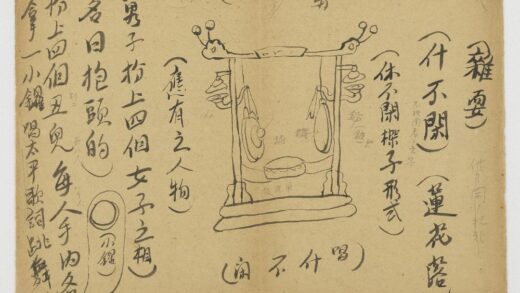 (雜耍)
(什不閑)(蓮花落)
不閑 子形式)
(唱什不閑)
(應有之人物)
男子扮上四個女子之相
名曰抱頭的
(小鑼)
扮上四個丑兒 每人手內各
拿一小鑼唱太平歌詞跳舞